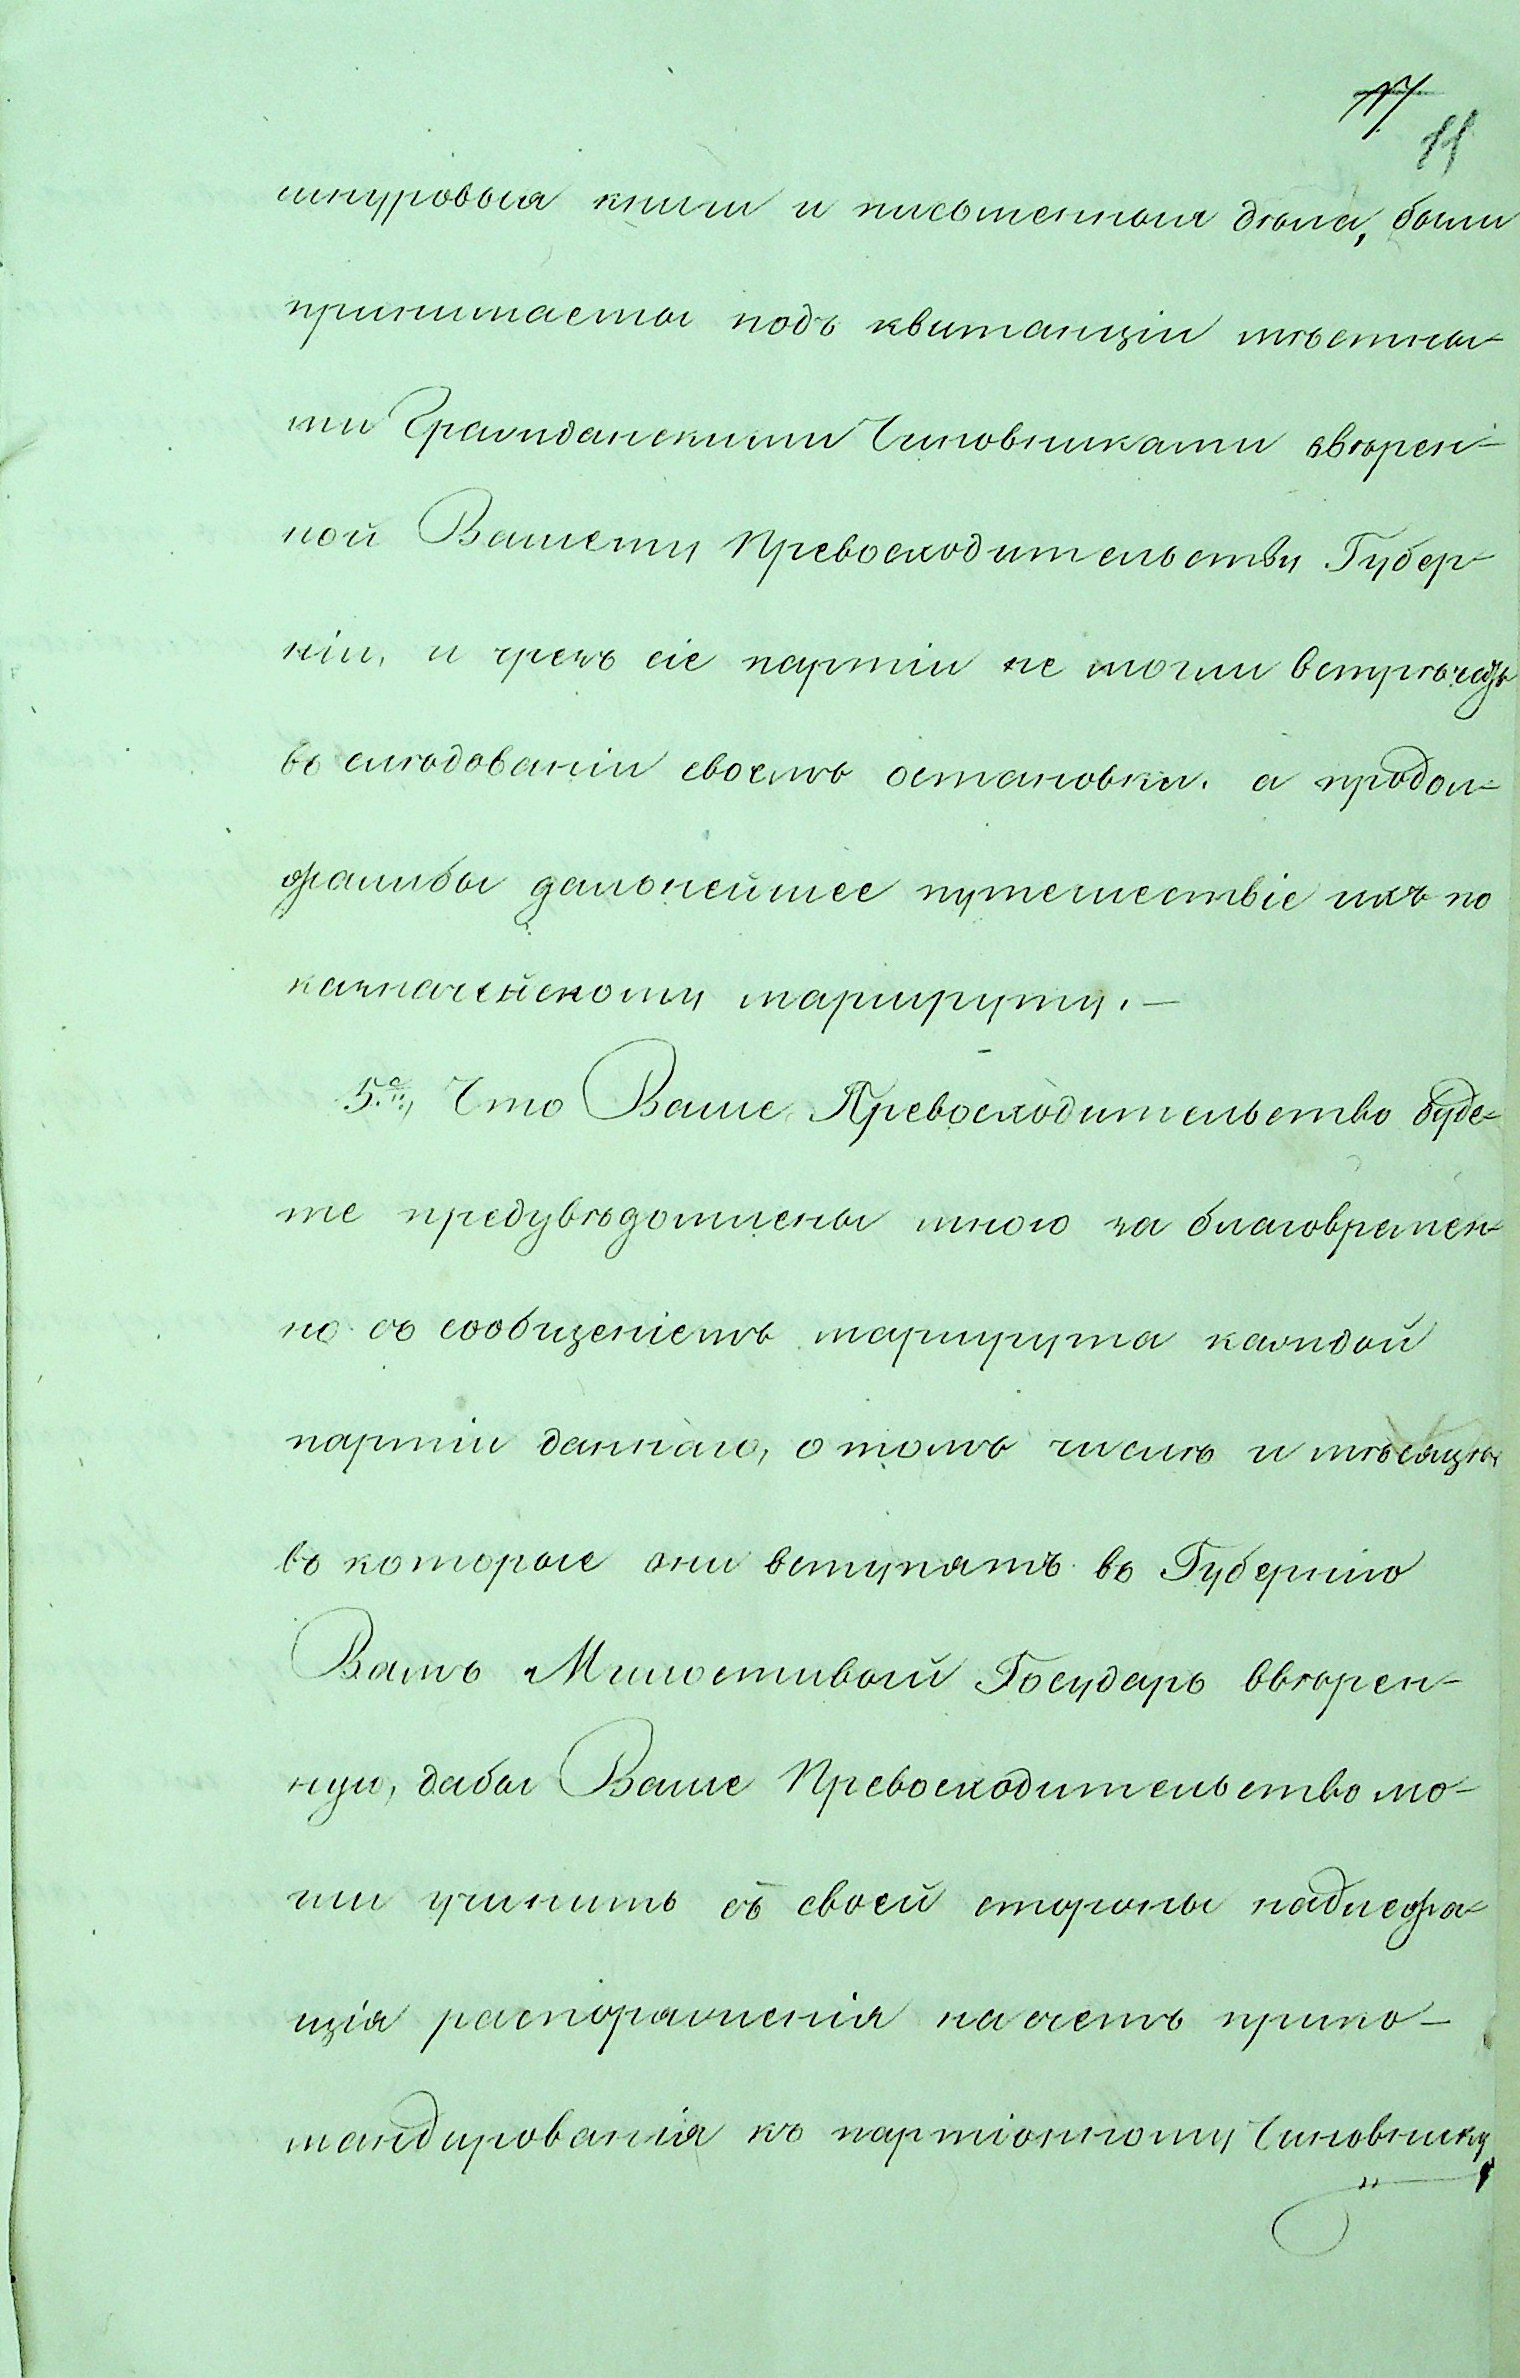 17
11
шнуровыя книги и письменныя дѣла, были
принимаемы подъ квитанціи мѣстны-
ми Гражданскими Чиновниками ввѣрен-
ной Вашему Превосходительству Губер-
ніи, и чрезъ сіе партіи не могли встрѣчать
въ слѣдованіи своемъ остановки. а продол-
жалибы дальнейшее путешествіе ихъ по
казначейскому маршруту.—
5.е, Что Ваше Превосходительство буде-
те предувѣдомлены мною за благовремен-
но съ сообщеніемъ маршрута каждой
партіи даннаго, о томъ числѣ и мѣсяцѣ,
въ которые они вступятъ въ Губернію
Вамъ Милостивый Государь ввѣрен-
ную, дабы Ваше Превосходительство мо-
гли учинить съ своей стороны надлежа-
щія распоряженія на счетъ прико-
мандированія къ партіонному Чиновнику